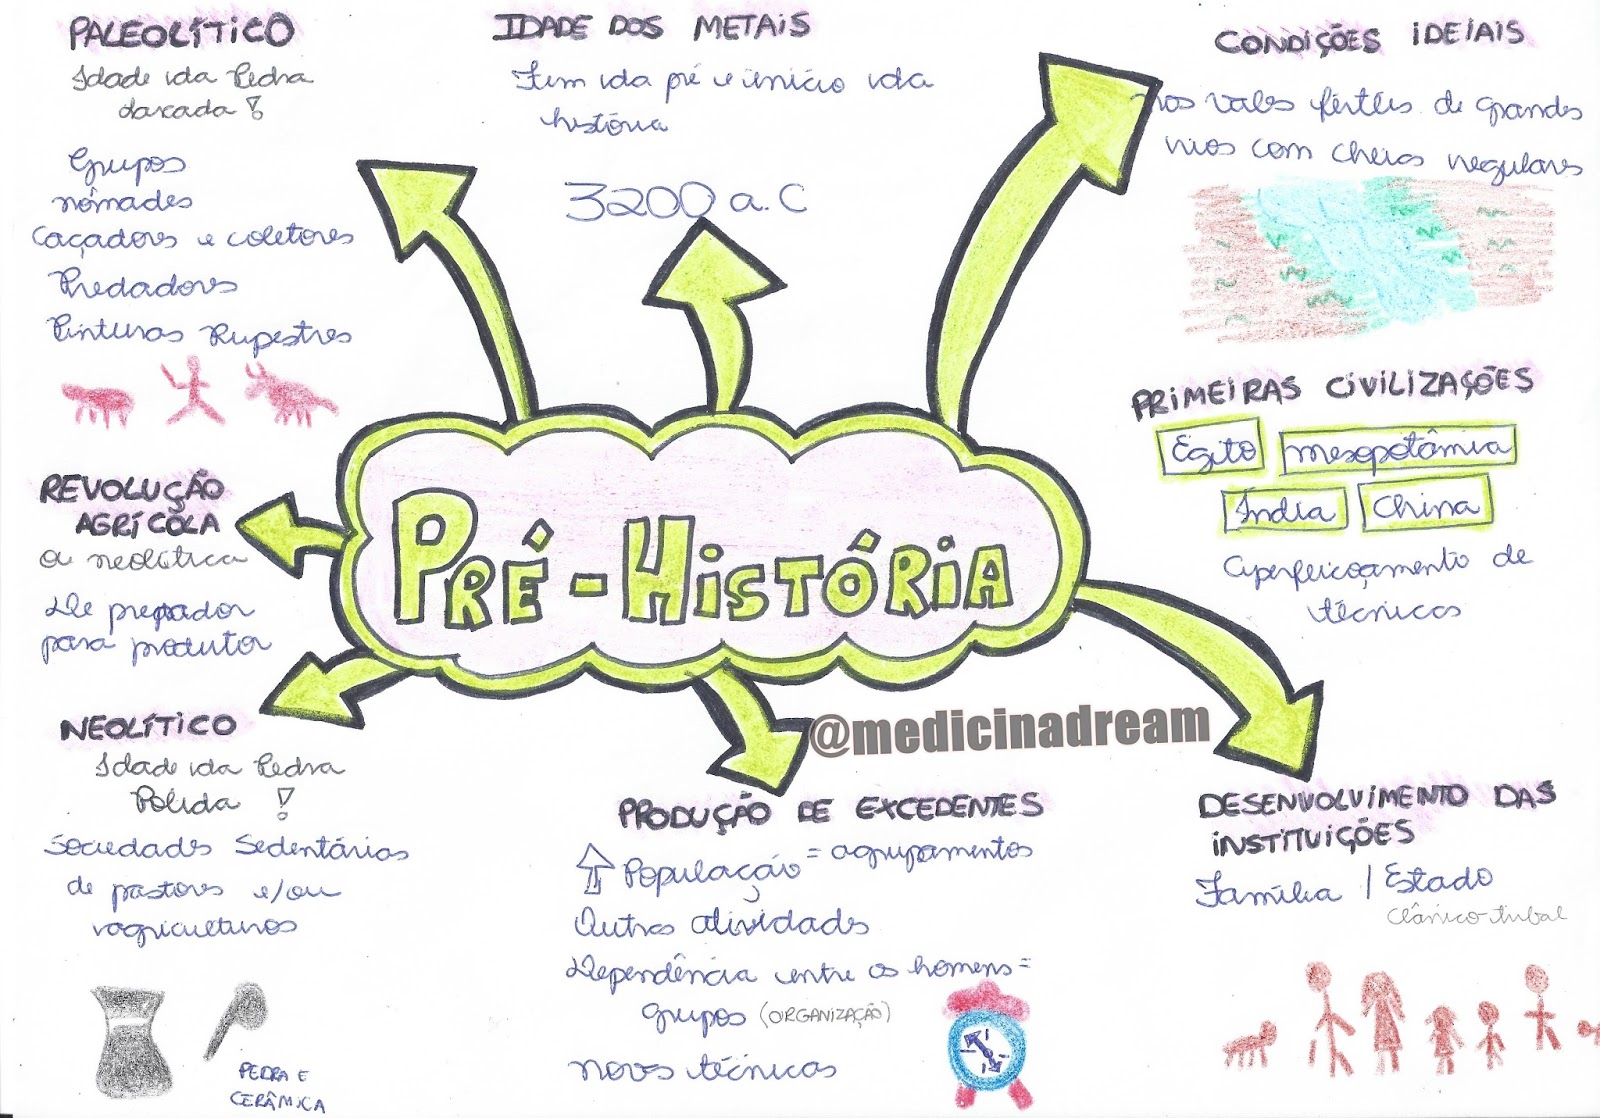 PALEOLÍTICO
Idade da Pedra
Lascada !
Grupos
nômades
Caçadores e coletores
Predadores
Pinturas Rupestres
IDADE DOS METAIS
Fim da pré e início da
história
3200 a.C
CONDIÇÕES IDEIAIS
nos vales férteis de grandes
rios com cheias regulares
PRIMEIRAS CIVILIZAÇÕES
Egito Mesopotâmia
Índia China
Aperfeiçoamento de
técnicas
PRÉ-HISTÓRIA
REVOLUÇÃO
AGRÍCOLA
a neolítica
De predador
para produtor
NEOLÍTICO
Idade da Pedra
Polida !
Sociedades Sedentárias
de pastores e/ou
agricultores
PEDRA E
CERÂMICA
@medicinadream
PRODUÇÃO DE EXCEDENTES
População = agrupamentos
Outras atividades
Dependência entre os homens =
grupos (ORGANIZAÇÃO)
novas técnicas
DESENVOLVIMENTO DAS
INSTITUIÇÕES
Família / Estado
Clânico-tribal